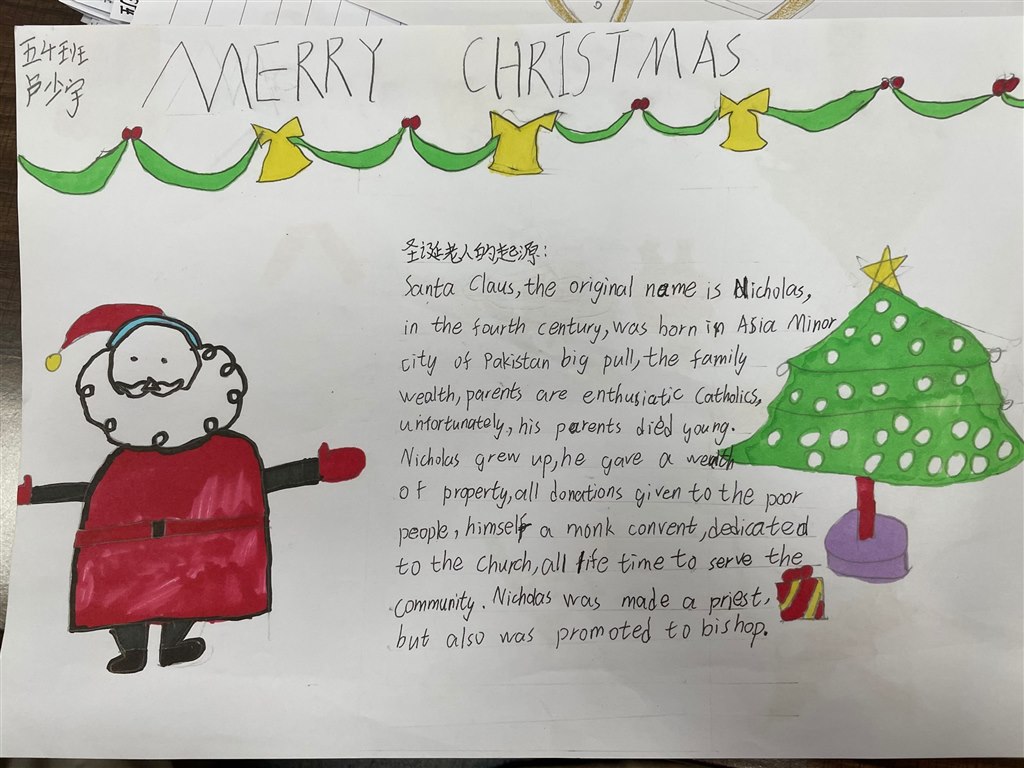 五4班
卢少宇
MERRY CHRISTMAS
圣诞老人的起源:
Santa Claus, the original name is Nicholas,
in the fourth century, was born in Asia Minor
city of Pakistan big pull, the family
wealth, parents are enthusiatic Catholics,
unfortunately, his parents died young.
Nicholas grew up, he gave a wealth
of property, all donations given to the poor
people, himself a monk convent, dedicated
to the Church, all life time to serve the
community. Nicholas was made a priest,
but also was promoted to bishop.